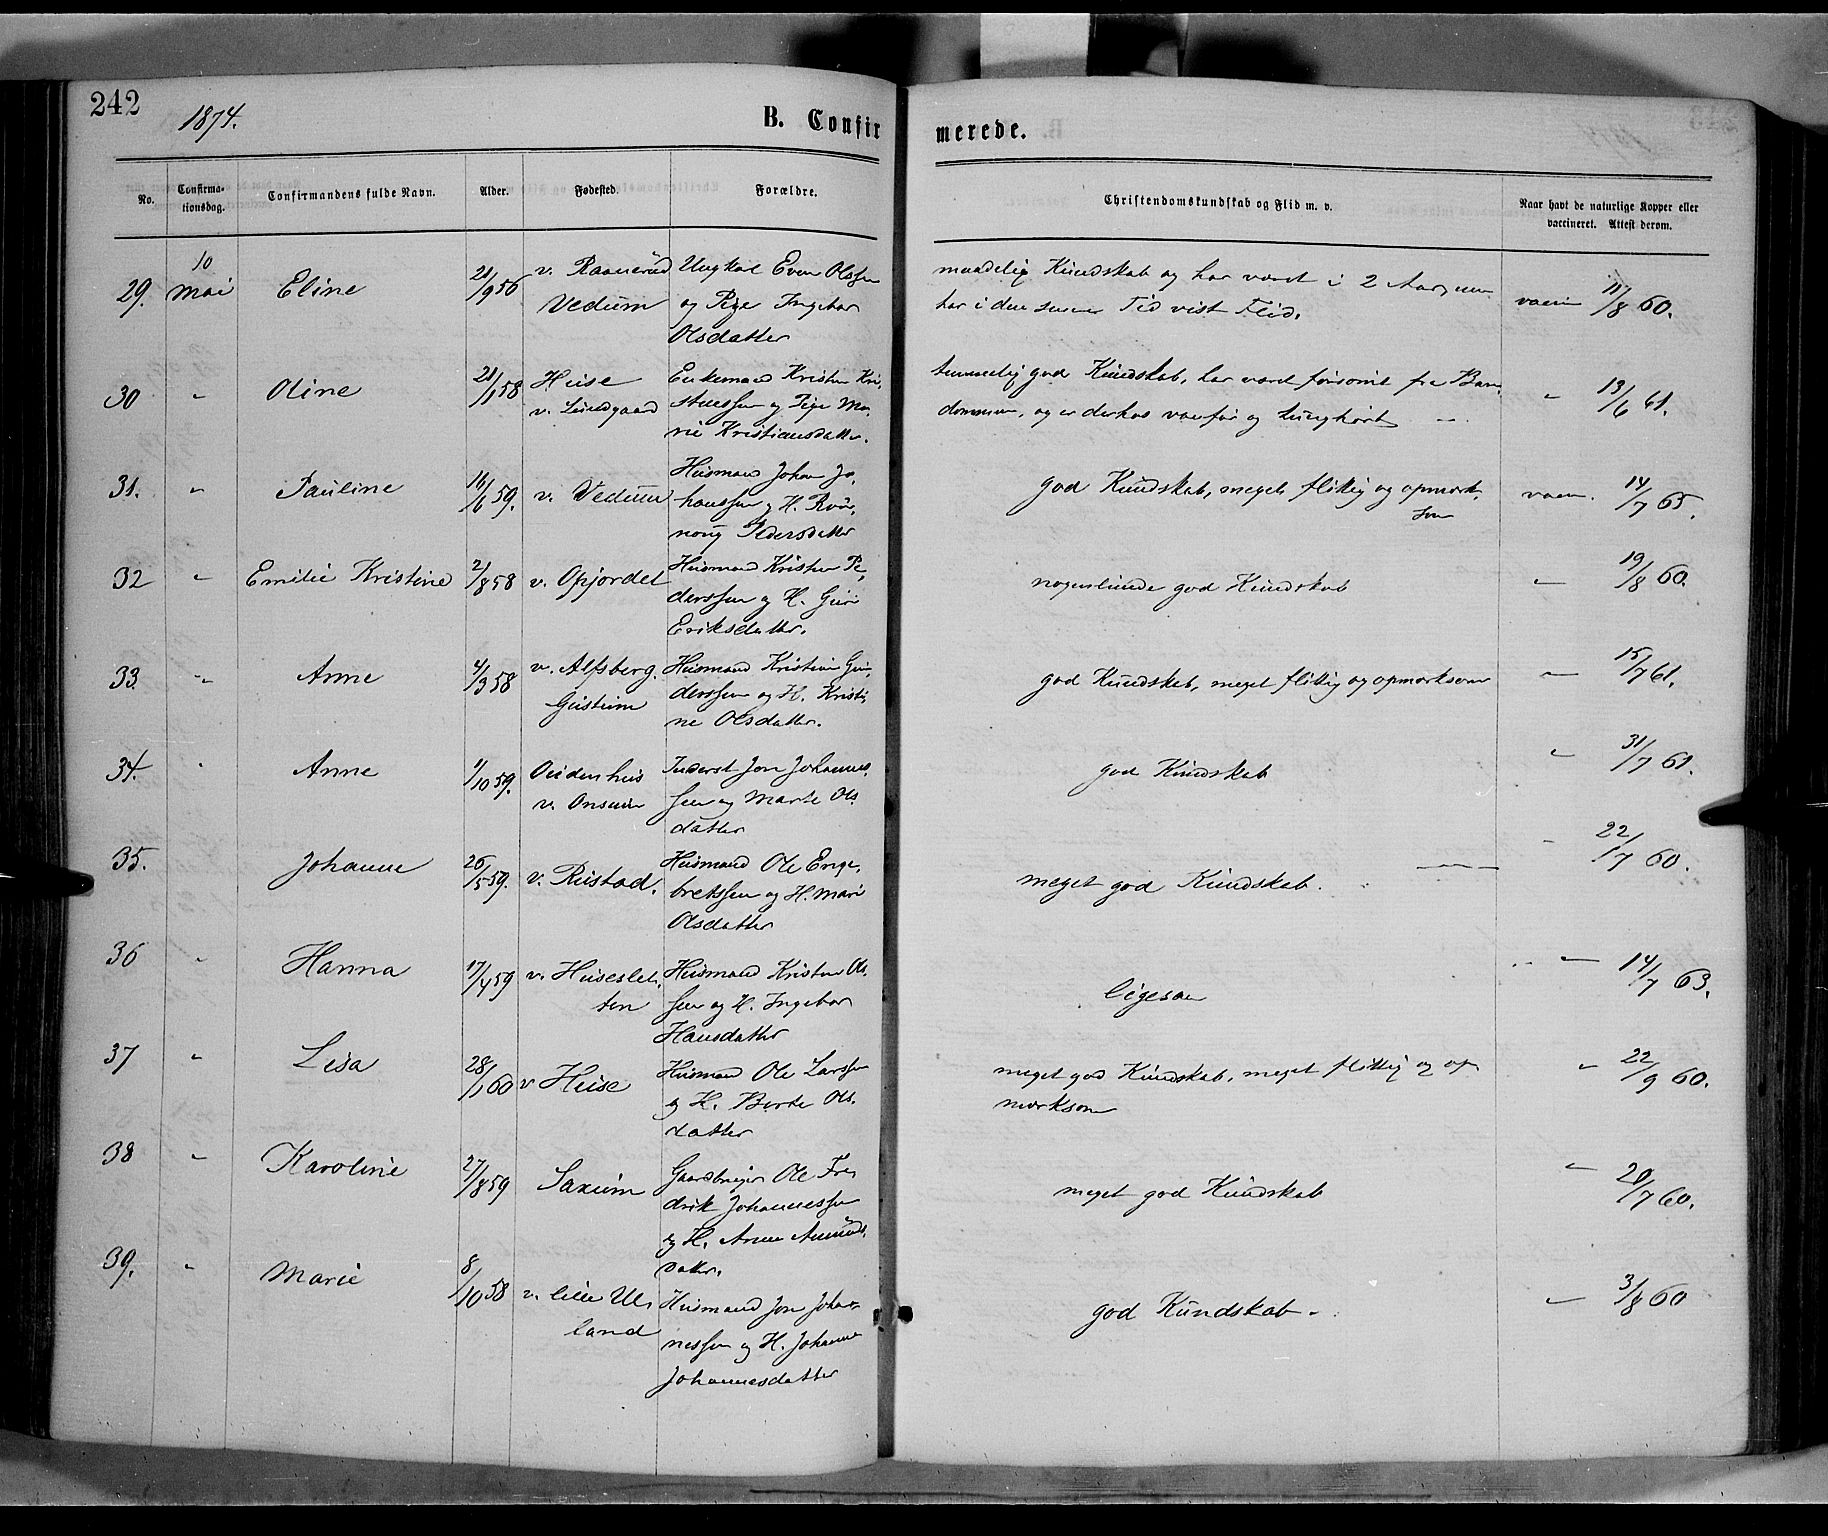 242
1874.
B. Confirmerede.
No. Confirmationsdag. Confirmandens fulde Navn. Alder. Fødested. Forældre. Christendomskundskab og Flid m. v. Naar havt de naturlige Kopper eller vaccineret. Attest derom.
29. 10 Mai Eline 21/9 56 v. Raanerud Vedum Ungkarl Even Olssen
og Pige Ingebor
Olsdatter
maadelig Kundskab og har været i 2 Aar, men
har i den senere Tid vist Flid. vaccin 11/8 60.
30 " Oline 21/1 58 Huse
v. Lundgaard
Enkemand Kristen Kri-
stenssen og Pige Ma-
rie Kristiansdatter.
temmelig god Kundskab, har været forsømt fra Barn-
dommen, og er derhos vanfør og tunghørt " 13/6 61.
31. " Pauline 16/6 59. v. Vedum
Husmand Johan Jo-
hanssen og H. Røn-
noug Pedersdatter
god Kundskab, meget flittig og opmærk-
som vaccin. 14/7 65.
32 " Emilie Kristine 2/8 58 v. Opjordet
Husmand Kristen Pe-
derssen og H. Guri
Eriksdatter.
nogenlunde god Kundskab " 19/8 60.
33. " Anne 4/3 58 v. Alfsberg.
Gustum
Husmand Kristian Gun-
derssen og H. Kristi-
ne Olsdatter.
god Kundskab, meget flittig og opmærksom " 15/7 61.
34. " Anne 1/10 59. v. Onsum
Inderst Jon Johannes-
sen og Marte Ols
datter
god Kundskab " 31/7 61.
35. Johanne 26/5 59. v. Rustad.
Husmand Ole Enge-
bretssen og H. Mari
Olsdatter
meget god Kundskab. " 22/7 60.
36 " Hanna 17/4 59 v. Huseslet-
ten
Husmand Kristen Ols-
sen og H. Ingebor
Hansdatter
ligesaa " 14/7 63.
37 " Lisa 28/1 60 v Huse
Husmand Ole Larssen
og H. Berte Ols-
datter
meget god Kundskab, meget flittig og op
mærksom " 22/9 60.
38 " Karoline 27/8 59 Saxum
Gaardbruger Ole Fre-
drik Johannessen
og H. Anne Amunds-
datter.
meget god Kundskab " 20/7 60.
39. " Marie 8/10 58 v. lille Ul-
land
Husmand Jon Johan-
nessen og H. Johanne
Johannesdatter
god Kundskab. " 3/8 60